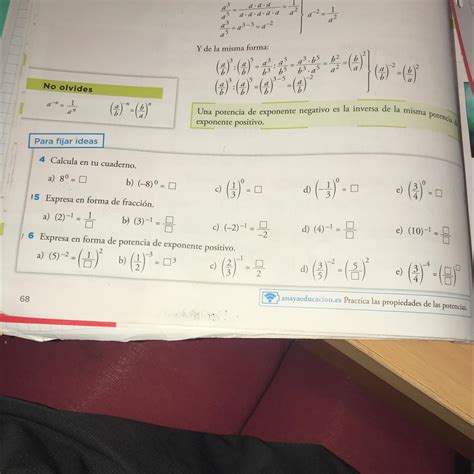 a³/a⁵ = a · a · a / a · a · a · a · a = 1/a² } a⁻² = 1/a²
a³/a⁵ = a³⁻⁵ = a⁻²
Y de la misma forma:
(a/b)³ : (a/b)⁵ = a³/b³ : a⁵/b⁵ = a³ · b⁵/b³ · a⁵ = b²/a² = (b/a)² } (a/b)⁻² = (b/a)²
(a/b)³ : (a/b)⁵ = (a/b)³⁻⁵ = (a/b)⁻²
No olvides
a⁻ⁿ = 1/aⁿ (a/b)⁻ⁿ = (b/a)ⁿ
Una potencia de exponente negativo es la inversa de la misma potencia
exponente positivo.
Para fijar ideas
4 Calcula en tu cuaderno.
a) 8⁰ = □ b) (–8)⁰ = □ c) (1/3)⁰ = □ d) (–1/3)⁰ = □ e) (3/4)⁰ = □
5 Expresa en forma de fracción.
a) (2)⁻¹ = 1/□ b) (3)⁻¹ = □/□ c) (–2)⁻¹ = □/–2 d) (4)⁻¹ = □/□ e) (10)⁻¹ = □/□
6 Expresa en forma de potencia de exponente positivo.
a) (5)⁻² = (1/□)² b) (1/2)⁻³ = □³ c) (2/3)⁻¹ = □/2 d) (3/5)⁻² = (5/□)² e) (3/4)⁻⁴ = (□/□)□
68
anayaeducacion.es Practica las propiedades de las potencias.